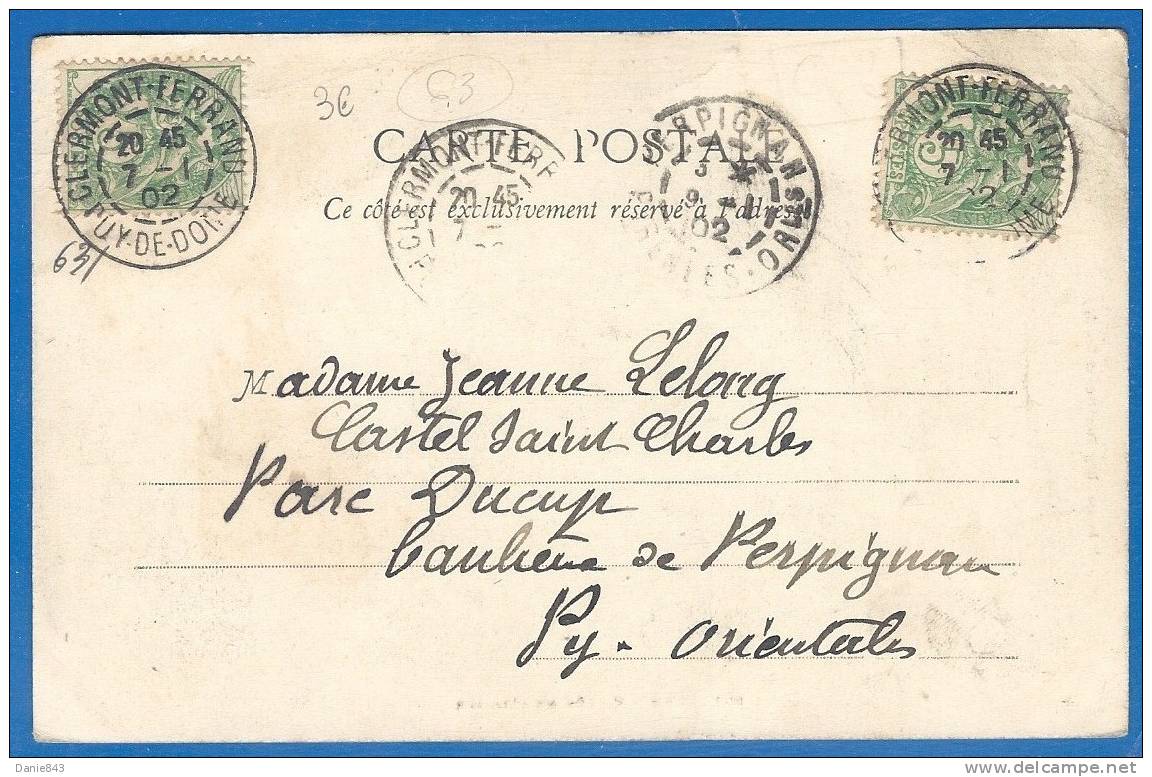 CLERMONT-FERRAND
20 45
7 - 1
02
PUY-DE-DOME
63
3€
CARTE POSTALE
Ce côté est exclusivement réservé à l'adresse
CLERMONT-FERR
20 45
7
PERPIGNAN
3
9 - 1
02
PYRENEES-ORLES
CLERMONT-FERRAND
20 45
7 - 1
02
Madame Jeanne Lelong
Castel Saint Charles
Parc Ducup
banlieue de Perpignan
Py. Orientales
Danie843
http://www.delcampe.net